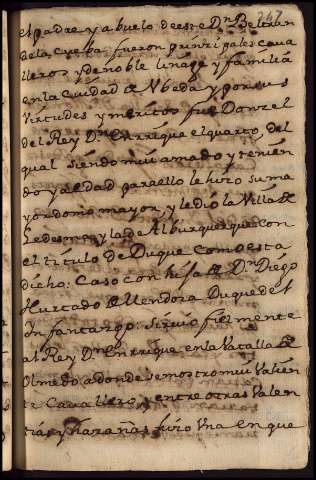 247
el padre y abuelo de este Dn Beltran
de la cueba fueron prinzipales cava
lleros y de noble linage y familia
en la Ciudad de Vbeda y por sus
virtudes y meritos fue Donzel
del Rey Dn Enrrique el quarto, del
qual siendo mui amado y tenien
do ya edad para ello le hizo su ma
yordomo mayor, y le dio la Villa de
Ledesma y la de Alburquerque con
el titulo de Duque como esta
dicho: Caso con hija de Dn Diego
Hurtado de Mendoza Duque del
Ynfantazgo: sirvio fielmente
al Rey Dn Enrrique en la Vatalla de
Olmedo adonde se mostro mui Valien
te Cavallero, y entre otras Valen
tias y hazañas hizo Vna en que